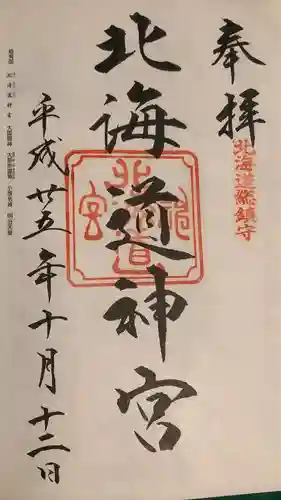 奉拝
北海道総鎮守
北海道神宮
北海道神宮
平成廿五年十月十二日